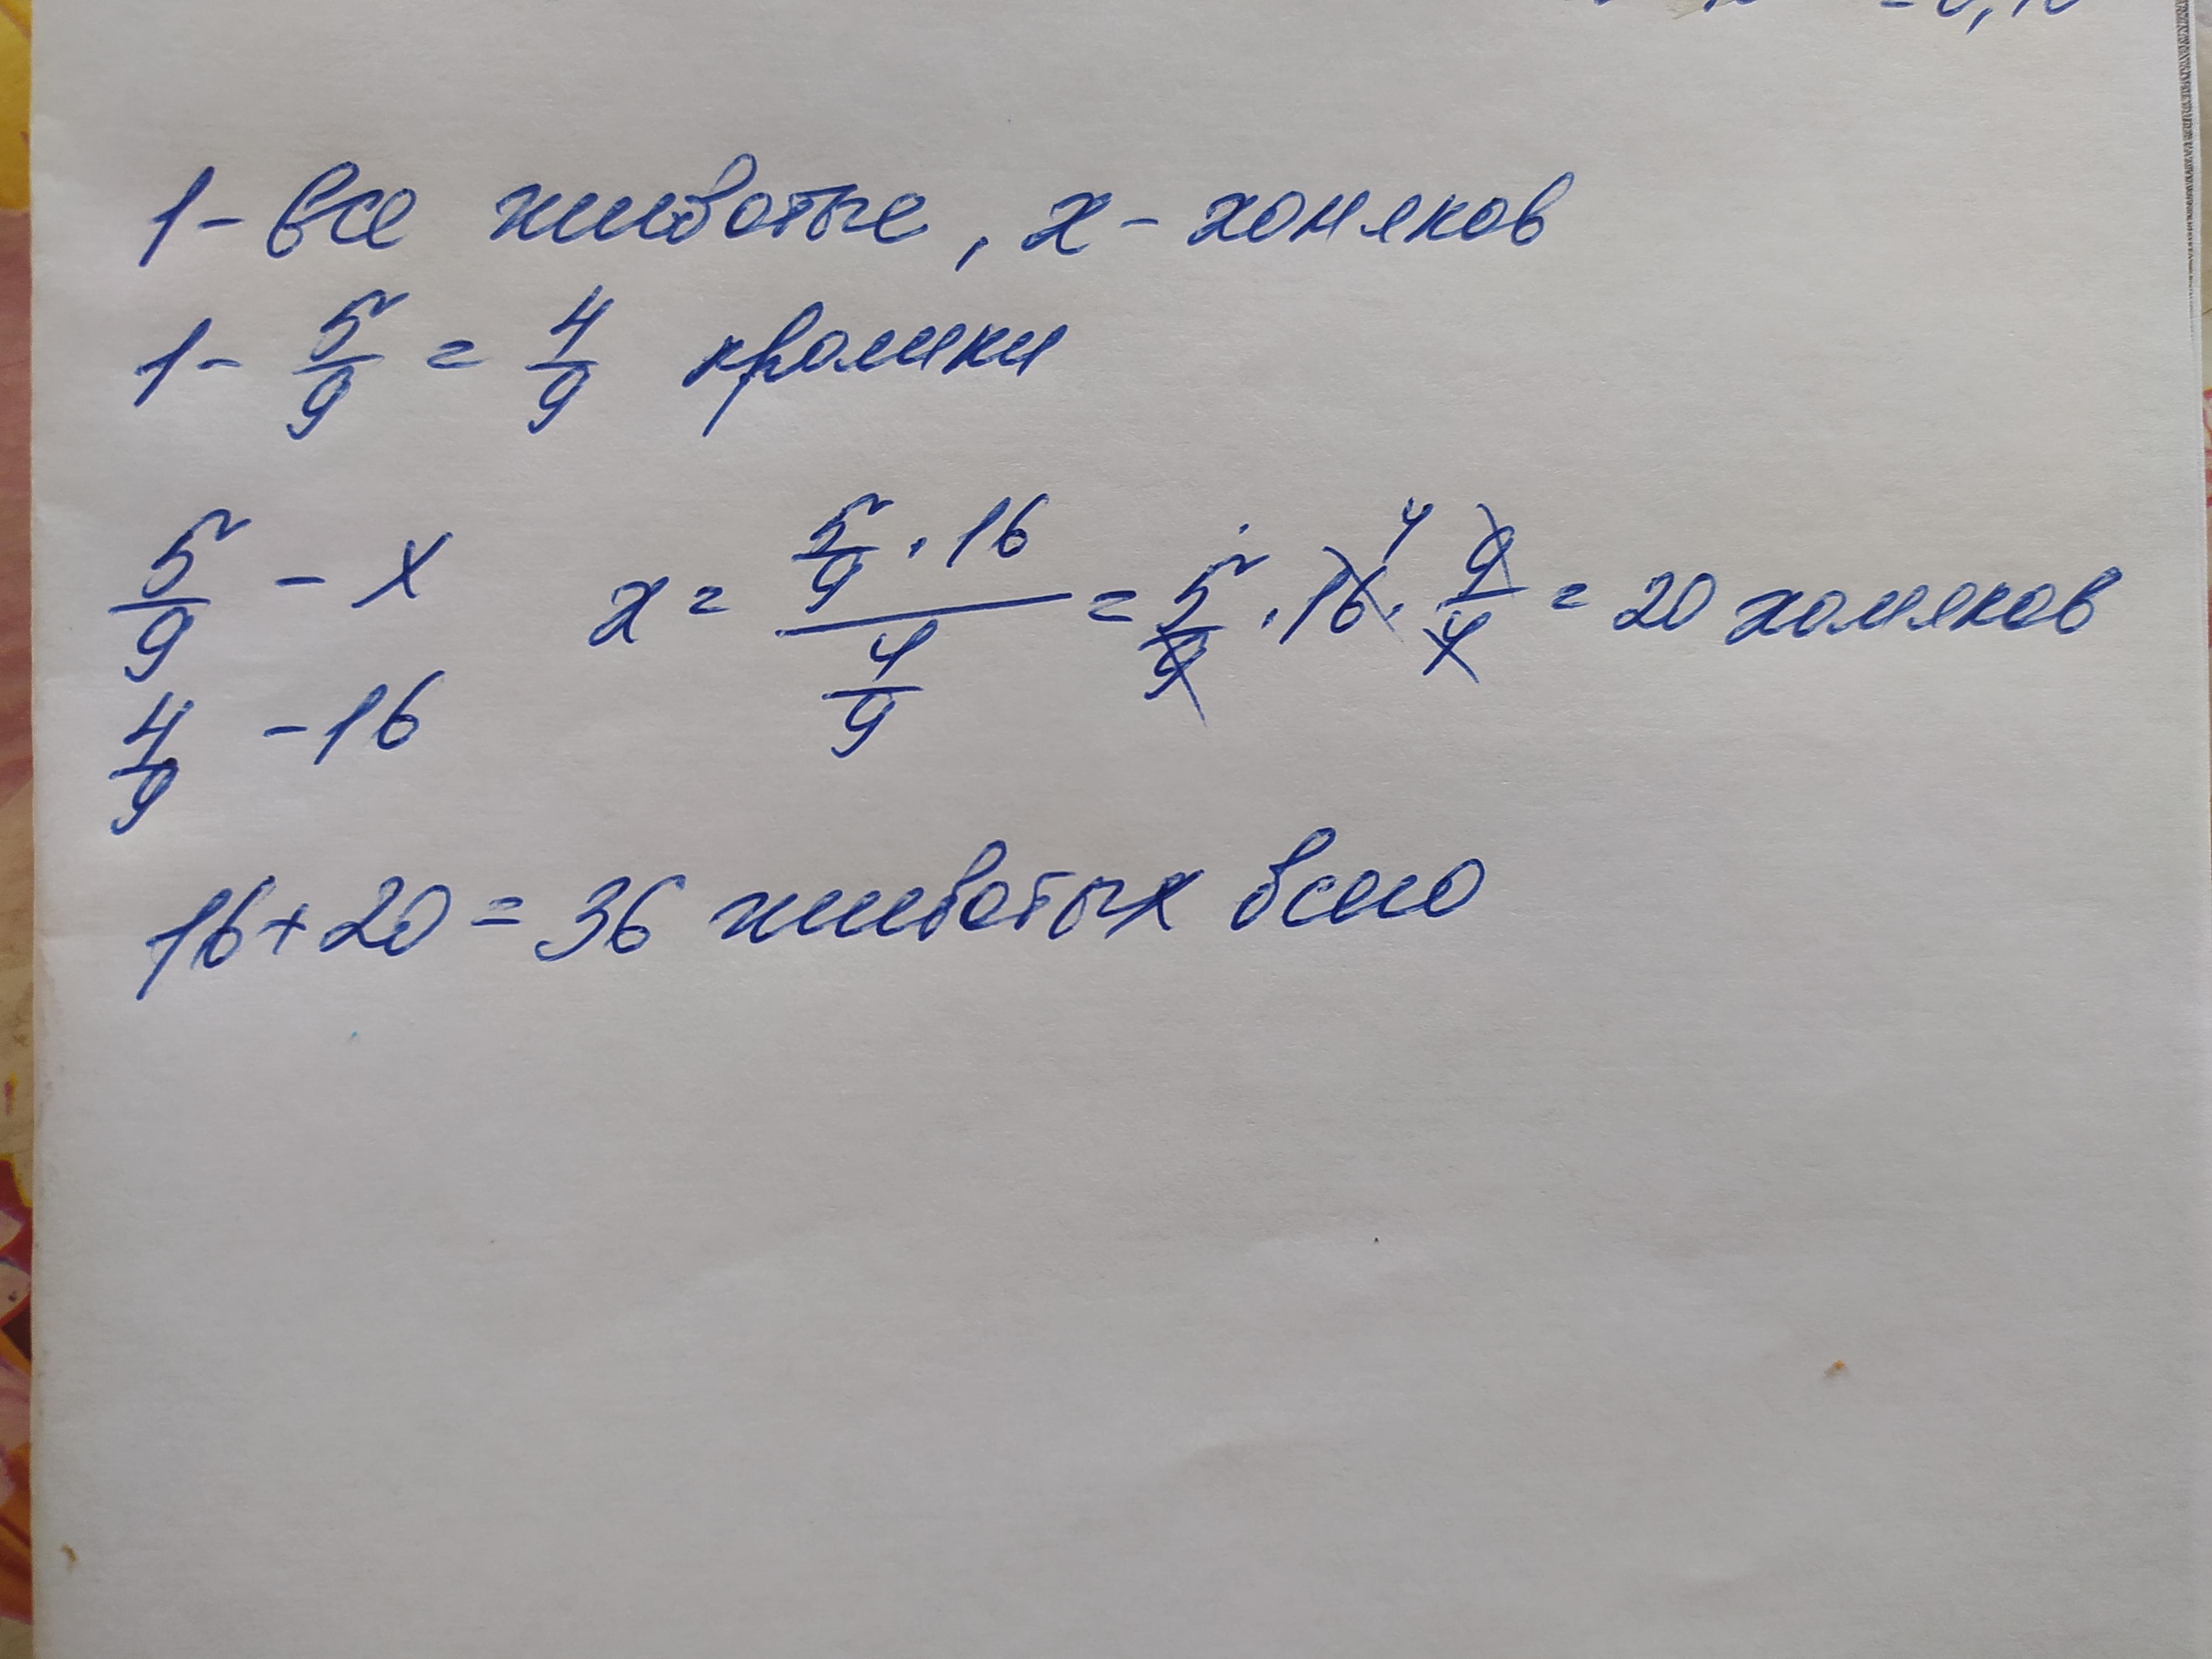 1 - все животные, х - хомяков
1 - 5/9 = 4/9 кролики
5/9 - х
4/9 - 16
х = (5/9 · 16)/(4/9) = 5/9 · 16 4 · 9/4 = 20 хомяков
16 + 20 = 36 животных всего